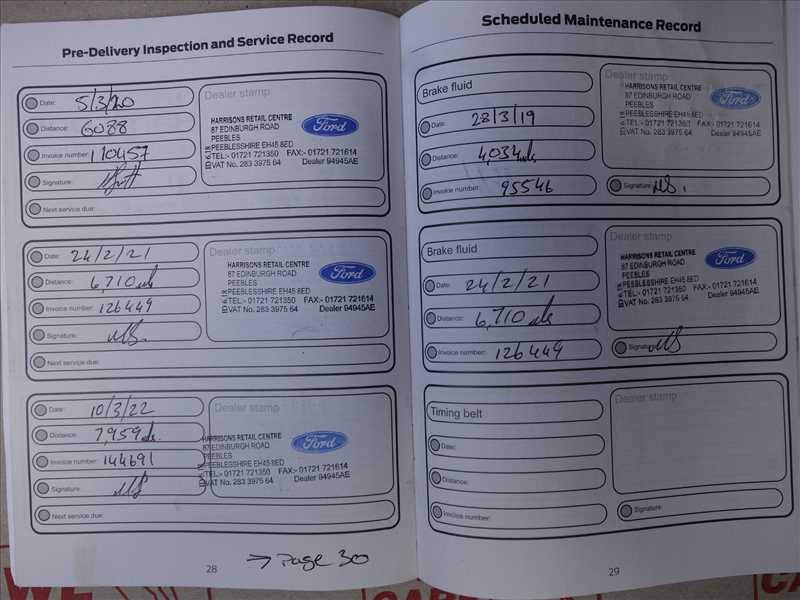 Pre-Delivery Inspection and Service Record
Date: 5/3/20
Distance: 6088
Invoice number: 110457
Signature:
Next service due:
Dealer stamp
HARRISONS RETAIL CENTRE
87 EDINBURGH ROAD
PEEBLES
PEEBLESSHIRE EH45 8ED
TEL:- 01721 721350 FAX:- 01721 721614
VAT No. 283 3975 64 Dealer 94945AE
Ford
Date: 24/2/21
Distance: 6,710 mls
Invoice number: 126449
Signature: MS.
Next service due:
Dealer stamp
HARRISONS RETAIL CENTRE
87 EDINBURGH ROAD
PEEBLES
PEEBLESSHIRE EH45 8ED
TEL:- 01721 721350 FAX:- 01721 721614
VAT No. 283 3975 64 Dealer 94945AE
Ford
Date: 10/3/22
Distance: 7,959 mls.
Invoice number: 144691
Signature: MS
Next service due:
Dealer stamp
HARRISONS RETAIL CENTRE
87 EDINBURGH ROAD
PEEBLES
PEEBLESSHIRE EH45 8ED
TEL:- 01721 721350 FAX:- 01721 721614
VAT No. 283 3975 64 Dealer 94945AE
Ford
28
→ Page 30
Scheduled Maintenance Record
Brake fluid
Date: 28/3/19
Distance: 4,034 mls
Invoice number: 95546
Dealer stamp
HARRISONS RETAIL CENTRE
87 EDINBURGH ROAD
PEEBLES
PEEBLESSHIRE EH45 8ED
TEL:- 01721 721350 FAX:- 01721 721614
VAT No. 283 3975 64 Dealer 94945AE
Ford
Signature: MS.
Brake fluid
Date: 24/2/21
Distance: 6,710 mls
Invoice number: 126449
Dealer stamp
HARRISONS RETAIL CENTRE
87 EDINBURGH ROAD
PEEBLES
PEEBLESSHIRE EH45 8ED
TEL:- 01721 721350 FAX:- 01721 721614
VAT No. 283 3975 64 Dealer 94945AE
Ford
Signature: MS
Timing belt
Date:
Distance:
Invoice number:
Dealer stamp
Signature:
29
WE
CARE
CA